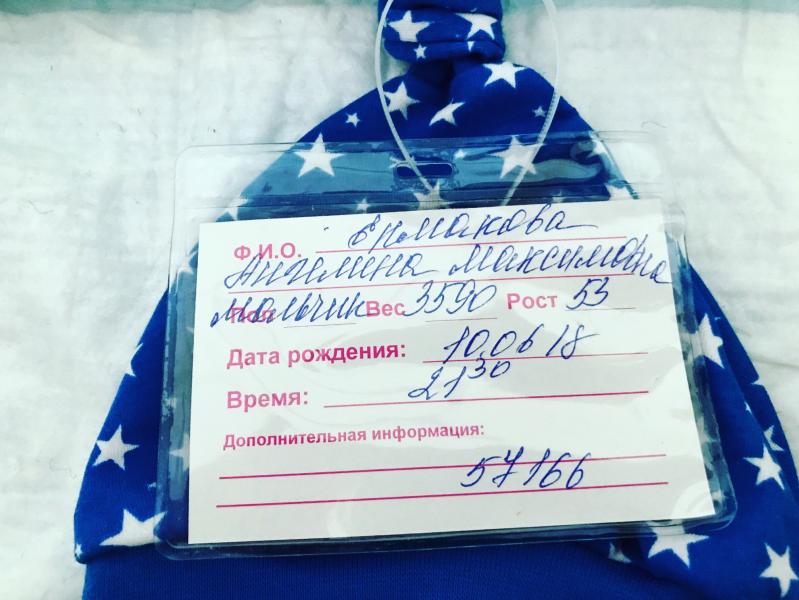 Ф.И.О. Ермакова
Ангелина Максимовна
Пол мальчик Вес 3590 Рост 53
Дата рождения: 10.06 18
Время: 21 30
Дополнительная информация:
57166